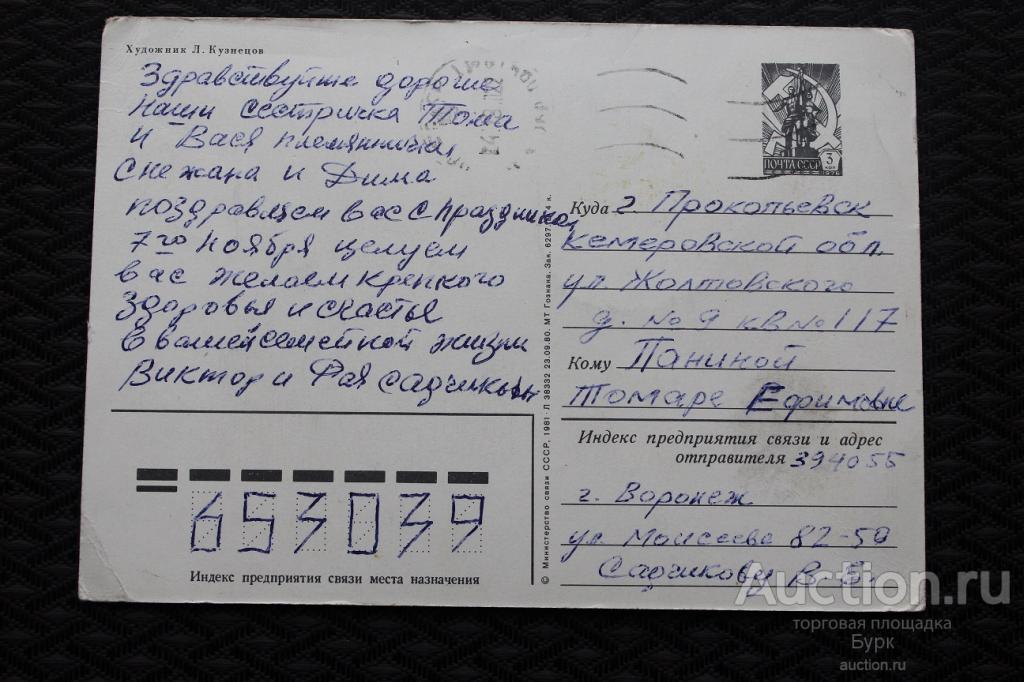 Художник Л. Кузнецов
Здравствуйте дорогие
наши сестричка Тома
и Вася племяннички
Снежана и Дима
поздравляем вас с праздником
7го ноября целуем
вас желаем крепкого
здоровья и счастье
в вашей семейной жизни
Виктор и Рая Садчиковы
ПОЧТА СССР 3 КОП
1976
Куда г. Прокопьевск
Кемеровской обл.
ул. Жолтовского
д. № 9 кв № 117
Кому Паниной
Томаре Ефимовне
Индекс предприятия связи и адрес
отправителя 394055
г. Воронеж
ул. Моисеева 82-50
Садчикову В.
653039
Индекс предприятия связи места назначения
© Министерство связи СССР, 1981 Л 38332 23.09.80. МТ Гознака. Зак. 4 к.
Auction.ru
торговая площадка
Бурк
auction.ru